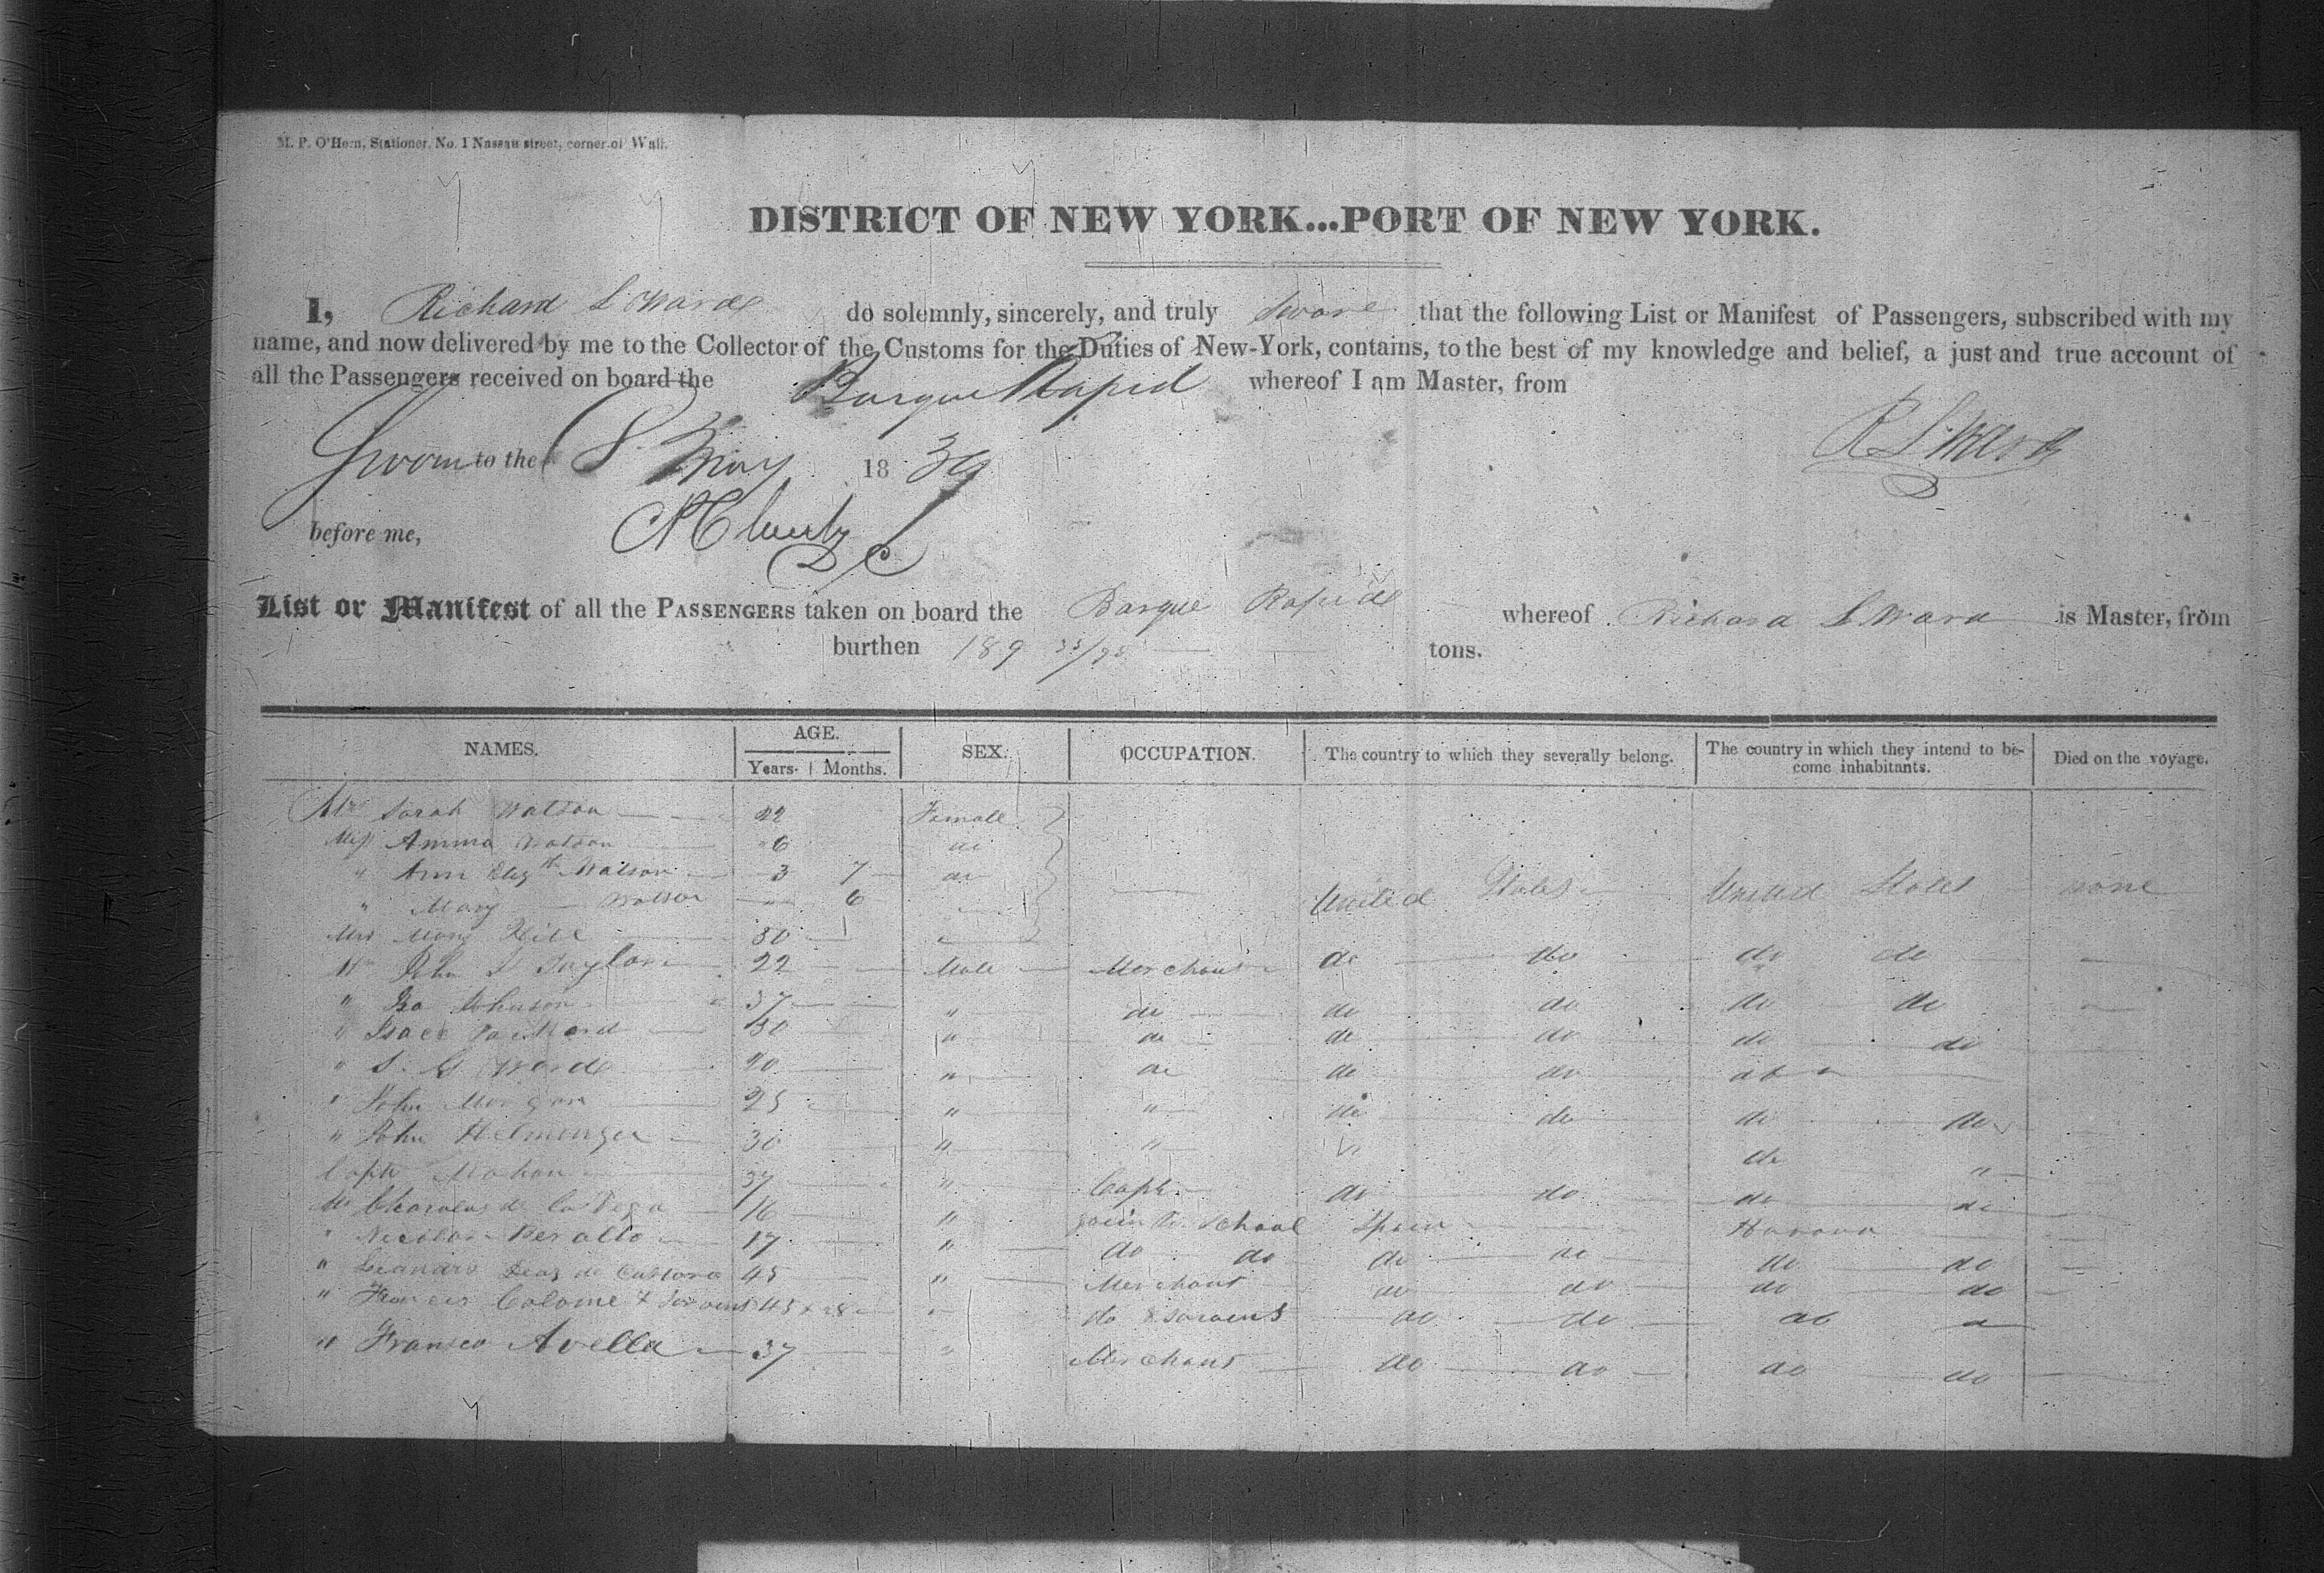 M. P. O'Hern, Stationer, No. 1 Nassau street, corner of Wall.
DISTRICT OF NEW YORK...PORT OF NEW YORK.
I, Richard L Ward do solemnly, sincerely, and truly Swore that the following List or Manifest of Passengers, subscribed with my
name, and now delivered by me to the Collector of the Customs for the Duties of New-York, contains, to the best of my knowledge and belief, a just and true account of
all the Passengers received on board the Barque Rapid whereof I am Master, from
R L Ward
Sworn to the 8 May 1839
before me,
D C
List or Manifest of all the PASSENGERS taken on board the Barque Rapid whereof Richard L Ward is Master, from
burthen 189 35/95 tons.
NAMES. AGE. Years. Months. SEX. OCCUPATION. The country to which they severally belong. The country in which they intend to become inhabitants. Died on the voyage.
Mrs Sarah Watson 22 Female
Miss Amma Watson 6 do
" Ann Elizth Watson 3 7 do United States United States none
" Mary Watson 6
Mrs Mary Hill 30
Mr John Taylor 22 Male Merchant do do do do
" Ira Johnson 37 " do do do do do
" Isaac Packard 30 " do do do do do
" S. G. Ward 20 " do do do
" John Morgan 25 " " do do do do
" John 30 " " " do "
Capt Mahon 37 " Capt do do do do
Mr de la Vega 16 " going to School Spain Havana
" Nicolas Peralto 17 " do do do do do do
" Leandro Diaz de 45 " Merchant do do do do
" Francis Colome & Servant 45 & 28 " do & servent do do do
" Fransco Avella 37 " Merchant do do do do